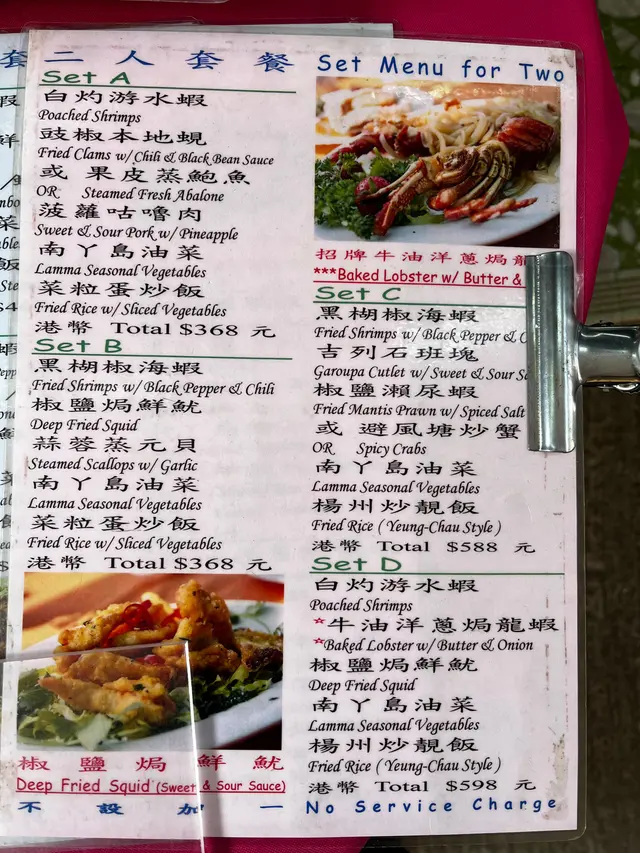 二人套餐 Set Menu for Two
Set A
白灼游水蝦
Poached Shrimps
豉椒本地蜆
Fried Clams w/ Chili & Black Bean Sauce
或 果皮蒸鮑魚
OR Steamed Fresh Abalone
菠蘿咕嚕肉
Sweet & Sour Pork w/ Pineapple
南丫島油菜
Lamma Seasonal Vegetables
菜粒蛋炒飯
Fried Rice w/ Sliced Vegetables
港幣 Total $368 元
Set B
黑椒椒海蝦
Fried Shrimps w/ Black Pepper & Chili
椒鹽焗鮮魷
Deep Fried Squid
蒜蓉蒸元貝
Steamed Scallops w/ Garlic
南丫島油菜
Lamma Seasonal Vegetables
菜粒蛋炒飯
Fried Rice w/ Sliced Vegetables
港幣 Total $368 元
椒鹽焗鮮魷
Deep Fried Squid (Sweet & Sour Sauce)
招牌牛油洋蔥焗
***Baked Lobster w/ Butter &
Set C
黑椒椒海蝦
Fried Shrimps w/ Black Pepper &
吉列石班塊
Garoupa Cutlet w/ Sweet & Sour
椒鹽瀨尿蝦
Fried Mantis Prawn w/ Spiced Salt
或 避風塘炒蟹
OR Spicy Crabs
南丫島油菜
Lamma Seasonal Vegetables
楊州炒靚飯
Fried Rice ( Yeung-Chau Style )
港幣 Total $588 元
Set D
白灼游水蝦
Poached Shrimps
*牛油洋蔥焗龍蝦
*Baked Lobster w/ Butter & Onion
椒鹽焗鮮魷
Deep Fried Squid
南丫島油菜
Lamma Seasonal Vegetables
楊州炒靚飯
Fried Rice ( Yeung-Chau Style )
港幣 Total $598 元
不設加一 No Service Charge